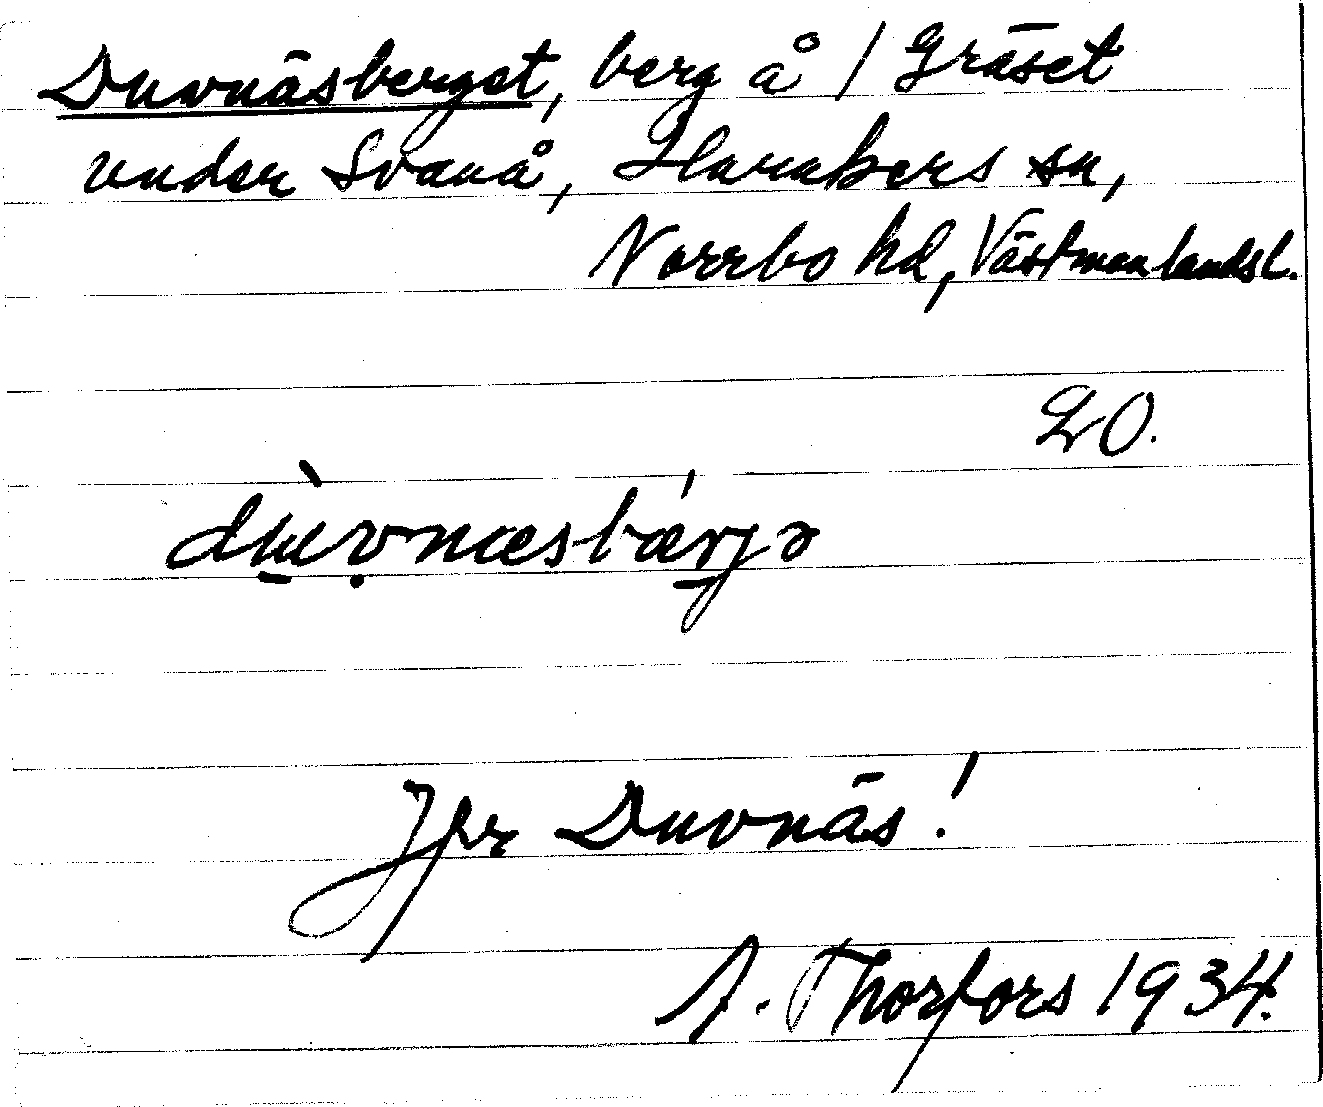 Duvnäsberget, berg å / Gräset
under Svanå, Harakers sn,
Norrbo hd, Västmanlands l.
20.
dùvnæsbærjə
Jfr Duvnäs!
A. Thorfors 1934.